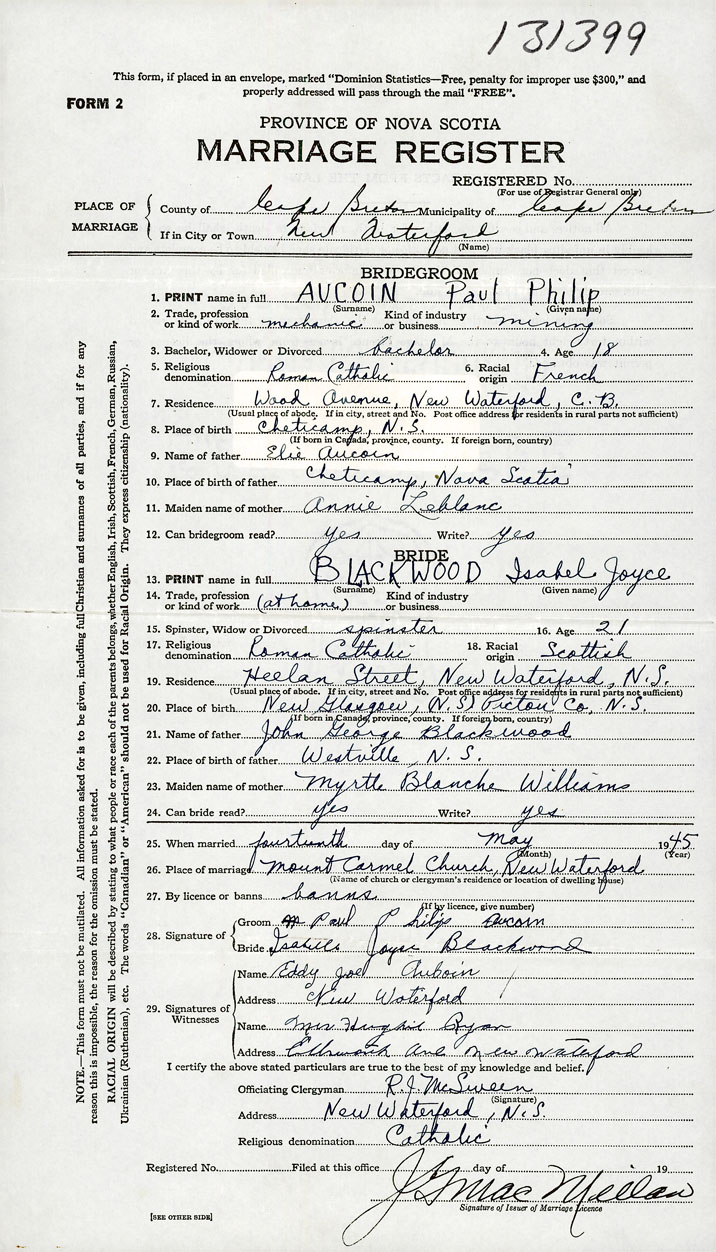 131399
This form, if placed in an envelope, marked "Dominion Statistics—Free, penalty for improper use $300," and
properly addressed will pass through the mail "FREE".
FORM 2
PROVINCE OF NOVA SCOTIA
MARRIAGE REGISTER
REGISTERED No.
(For use of Registrar General only)
PLACE OF MARRIAGE
County of Cape Breton Municipality of Cape Breton
If in City or Town New Waterford
(Name)
BRIDEGROOM
1. PRINT name in full AUCOIN Paul Philip
(Surname) (Given name)
2. Trade, profession or kind of work mechanic Kind of industry or business mining
3. Bachelor, Widower or Divorced bachelor 4. Age 18
5. Religious denomination Roman Catholic 6. Racial origin French
7. Residence Wood Avenue, New Waterford, C.B.
(Usual place of abode. If in city, street and No. Post office address for residents in rural parts not sufficient)
8. Place of birth Cheticamp, N.S.
(If born in Canada, province, county. If foreign born, country)
9. Name of father Elie Aucoin
10. Place of birth of father Cheticamp, Nova Scotia
11. Maiden name of mother Annie Leblanc
12. Can bridegroom read? yes Write? yes
BRIDE
13. PRINT name in full BLACKWOOD Isabel Joyce
(Surname) (Given name)
14. Trade, profession or kind of work (at home) Kind of industry or business
15. Spinster, Widow or Divorced spinster 16. Age 21
17. Religious denomination Roman Catholic 18. Racial origin Scottish
19. Residence Heelan Street, New Waterford, N.S.
(Usual place of abode. If in city, street and No. Post office address for residents in rural parts not sufficient)
20. Place of birth New Glasgow, (N.S) Pictou Co, N.S.
(If born in Canada, province, county. If foreign born, country)
21. Name of father John George Blackwood
22. Place of birth of father Westville, N.S.
23. Maiden name of mother Myrtle Blanche Williams
24. Can bride read? yes Write? yes
25. When married fourteenth day of May 1945
(Month) (Year)
26. Place of marriage Mount Carmel Church, New Waterford
(Name of church or clergyman's residence or location of dwelling house)
27. By licence or banns banns
(If by licence, give number)
28. Signature of
Groom Paul Philip Aucoin
Bride Isabelle Joyce Blackwood
29. Signatures of Witnesses
Name Eddy Joe Aucoin
Address New Waterford
Name Mrs Hughie Ryan
Address Ellsworth Ave New Waterford
I certify the above stated particulars are true to the best of my knowledge and belief.
Officiating Clergyman R.J. McSween
(Signature)
Address New Waterford, N.S.
Religious denomination Catholic
Registered No. Filed at this office day of 19
J G MacMillan
Signature of Issuer of Marriage Licence
[SEE OTHER SIDE]
NOTE.—This form must not be mutilated. All information asked for is to be given, including full Christian and surnames of all parties, and if for any
reason this is impossible, the reason for the omission must be stated.
RACIAL ORIGIN will be described by stating to what people or race each of the parents belongs, whether English, Irish, Scottish, French, German, Russian,
Ukrainian (Ruthenian), etc. The words "Canadian" or "American" should not be used for Racial Origin. They express citizenship (nationality).